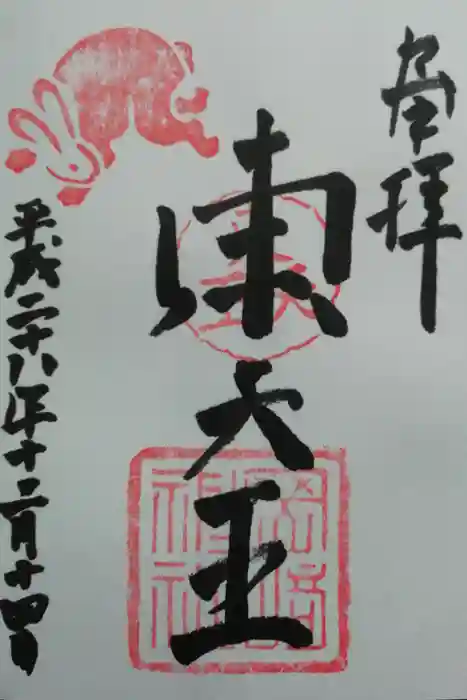 奉拝
東天王
平成二十八年十二月十四日
岡崎
神社